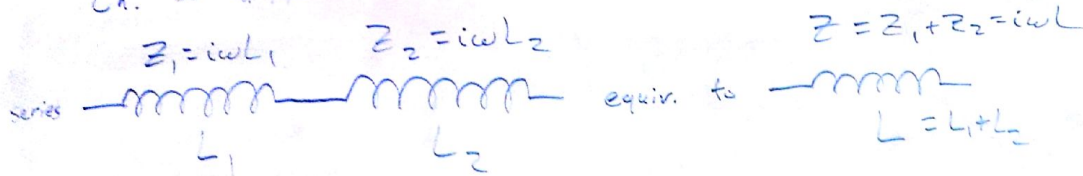 Z₁=iωL₁ Z₂=iωL₂ Z=Z₁+Z₂=iωL
series equiv. to
L₁ L₂ L=L₁+L₂